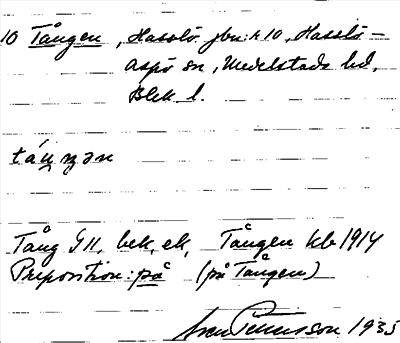 10 Tången, Hasslö jbn: k 10, Hasslö-
aspö sn, Medelstads hd,
Blek. l.
táŋŋən
Tång GH, bek, ek, Tången kb 1914
Preposition: på (på Tången)
Sven Pettersson 1935